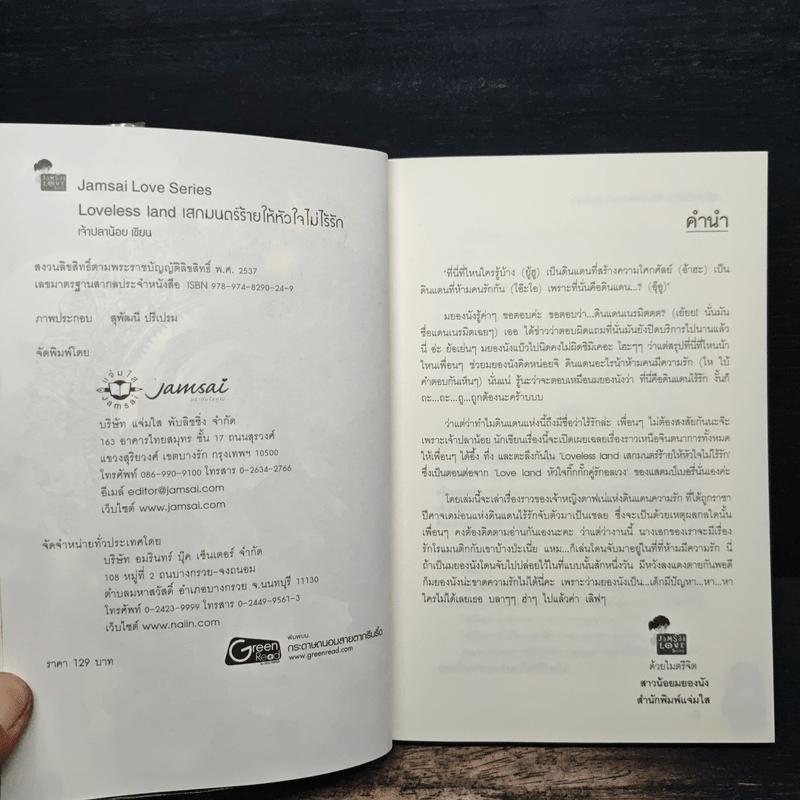 JAMSAI
LOVE
Jamsai Love Series
Loveless land เสกมนตร์ร้ายให้หัวใจไม่ไร้รัก
เจ้าปลาน้อย เขียน
สงวนลิขสิทธิ์ตามพระราชบัญญัติลิขสิทธิ์ พ.ศ. 2537
เลขมาตรฐานสากลประจำหนังสือ ISBN 978-974-8290-24-9
ภาพประกอบ สุพัฒนี ปรีเปรม
จัดพิมพ์โดย
แจ่มใส
Jamsai
jamsai
บริษัท แจ่มใส พับลิชชิ่ง จำกัด
163 อาคารไทยสมุทร ชั้น 17 ถนนสุรวงศ์
แขวงสุริยวงศ์ เขตบางรัก กรุงเทพฯ 10500
โทรศัพท์ 086-990-9100 โทรสาร 0-2634-2766
อีเมล์ editor@jamsai.com
เว็บไซต์ www.jamsai.com
จัดจำหน่ายทั่วประเทศโดย
บริษัท อมรินทร์ บุ๊ค เซ็นเตอร์ จำกัด
108 หมู่ที่ 2 ถนนบางกรวย-จงถนอม
ตำบลมหาสวัสดิ์ อำเภอบางกรวย จ.นนทบุรี 11130
โทรศัพท์ 0-2423-9999 โทรสาร 0-2449-9561-3
เว็บไซต์ www.naiin.com
ราคา 129 บาท
Green
Read
พิมพ์บน
กระดาษถนอมสายตากรีนรี้ด
www.greenread.com
คำนำ
"ที่นี่ที่ไหนใครรู้บ้าง (ยู้ฮู) เป็นดินแดนที่สร้างความโศกศัลย์ (อ้าฮะ) เป็น
ดินแดนที่ห้ามคนรักกัน (โอ๊ะโอ) เพราะที่นั่นคือดินแดน...? (อุ๊ฮู)
มยองนังรู้ค่าๆ ขอตอบค่ะ ขอตอบว่า...ดินแดนเนรมิตตต? (เย้ยย! นั่นมัน
ชื่อแดนเนรมิตเฉยๆ) เออ ได้ข่าวว่าตอบผิดแถมที่นั่นมันยังปิดบริการไปนานแล้ว
นี่ อ่ะ ย้อเย่นๆ มยองนังแบ๊วไปนิดคงไม่ผิดชิมิเคอะ โฮะๆๆ ว่าแต่สรุปที่นี่ที่ไหนน้า
ไหนเพื่อนๆ ช่วยมยองนังคิดหน่อยจิ ดินแดนอะไรน้าห้ามคนมีความรัก (โห ใบ้
คำตอบกันเห็นๆ) นั่นแน่ รู้นะว่าจะตอบเหมือนมยองนังว่า ที่นี่คือดินแดนไร้รัก งั้นก็
ถะ...ถะ...ถู...ถูกต้องนะคร้าบบบ
ว่าแต่ว่าทำไมดินแดนแห่งนี้ถึงมีชื่อว่าไร้รักล่ะ เพื่อนๆ ไม่ต้องสงสัยกันนะจ๊ะ
เพราะเจ้าปลาน้อย นักเขียนเรื่องนี้จะเปิดเผยเฉลยเรื่องราวเหนือจินตนาการทั้งหมด
ให้เพื่อนๆ ได้อึ้ง ทึ่ง และตะลึงกันใน 'Loveless land เสกมนตร์ร้ายให้หัวใจไม่ไร้รัก'
ซึ่งเป็นตอนต่อจาก 'Love land หัวใจกิ๊กกั๊กคู่รักอลเวง' ของแสตมป์เบอรี่นั่นเองค่ะ
โดยเล่มนี้จะเล่าเรื่องราวของเจ้าหญิงดาฟเน่แห่งดินแดนความรัก ที่ได้ถูกราชา
ปีศาจเดม่อนแห่งดินแดนไร้รักจับตัวมาเป็นเชลย ซึ่งจะเป็นด้วยเหตุผลกลใดนั้น
เพื่อนๆ คงต้องติดตามอ่านกันเองนะคะ ว่าแต่ว่างานนี้ นางเอกของเราจะมีเรื่อง
รักโรแมนติกกับเขาบ้างป่ะเนี่ย แหม...ก็เล่นโดนจับมาอยู่ในที่ที่ห้ามมีความรัก นี่
ถ้าเป็นมยองนังโดนจับไปปล่อยไว้ในที่แบบนั้นสักหนึ่งวัน มีหวังลงแดงตายกันพอดี
ก็มยองนังน่ะขาดความรักไม่ได้นี่คะ เพราะว่ามยองนังเป็น...เด็กมีปัญหา...หา...หา
ใครไม่ได้เลยเธอ บลาๆๆ ฮ่าๆ ไปแล้วค่า เลิฟๆ
JAMSAI
LOVE
ด้วยไมตรีจิต
สาวน้อยมยองนัง
สำนักพิมพ์แจ่มใส